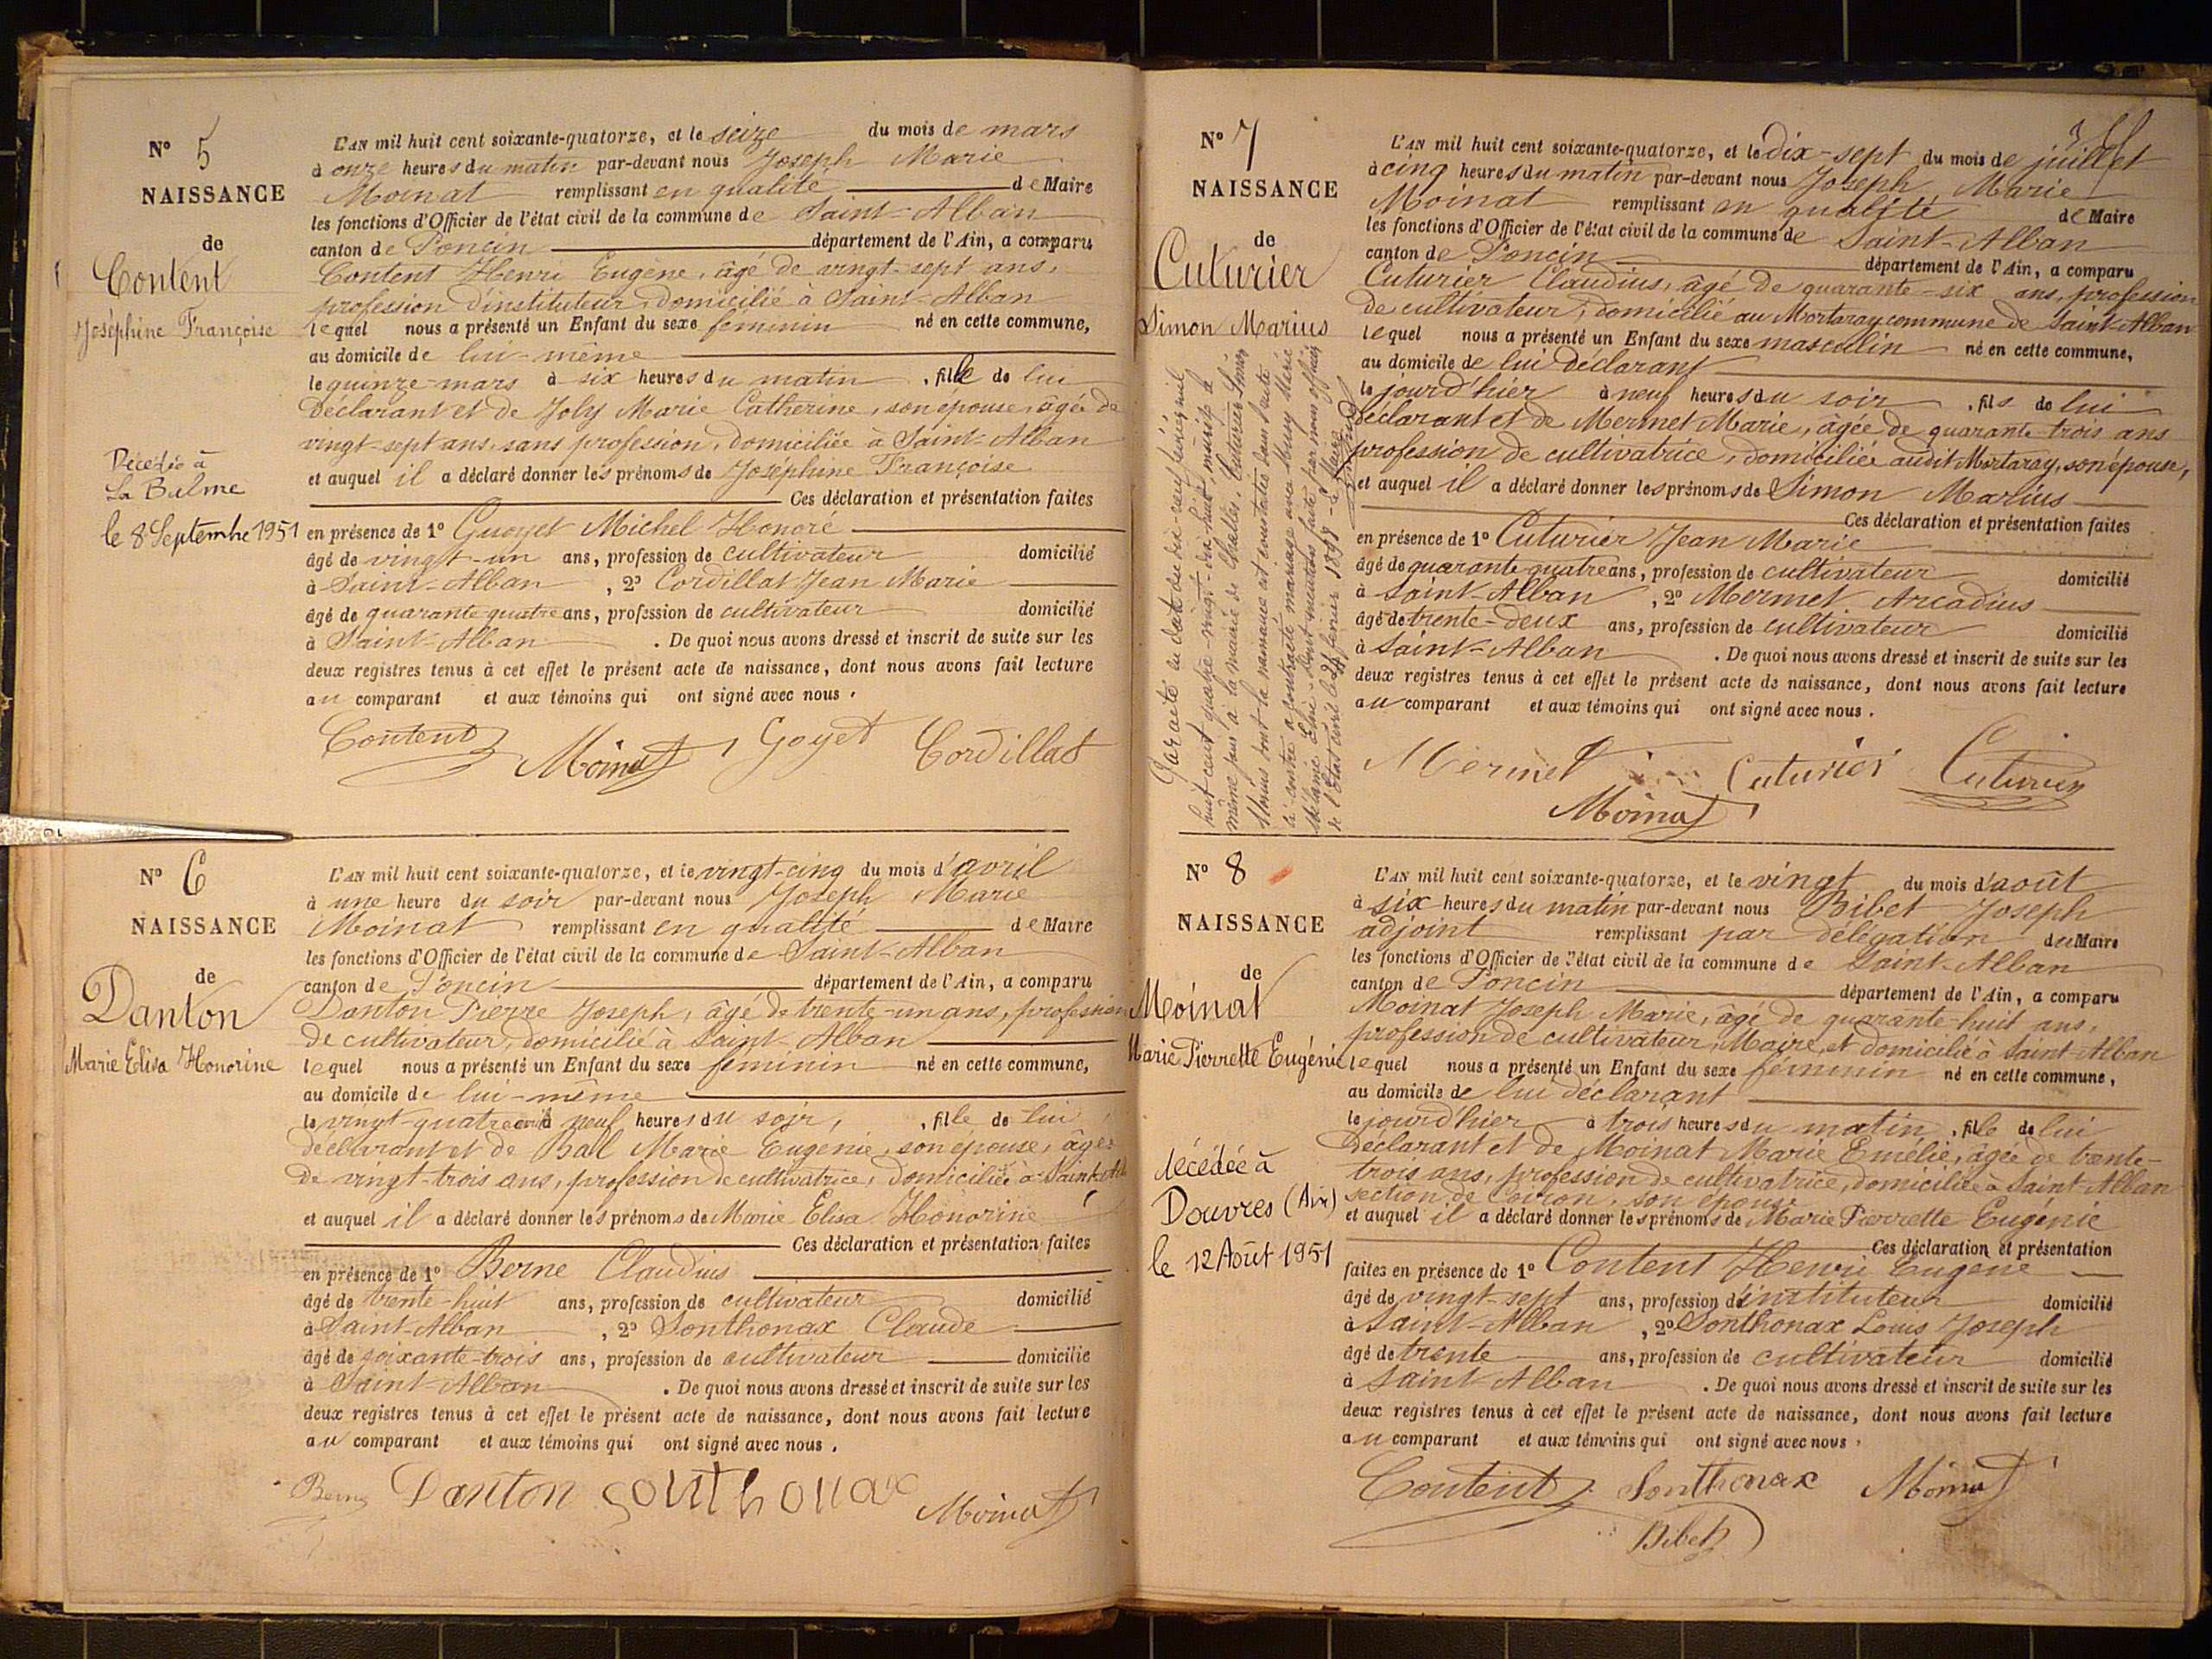 N° 5
NAISSANCE
de
Content
Joséphine Françoise
Décédée à
La Balme
le 8 Septembre 1951
L'AN mil huit cent soixante-quatorze, et le seize du mois de mars
à onze heures du matin par-devant nous Joseph Marie
Moinat remplissant en qualité de Maire
les fonctions d'Officier de l'état civil de la commune de Saint-Alban
canton de Poncin département de l'Ain, a comparu
Content Henri Eugène, âgé de vingt-sept ans,
profession d'instituteur, domicilié à Saint-Alban
lequel nous a présenté un Enfant du sexe féminin né en cette commune,
au domicile de lui-même
le quinze mars à six heures du matin, fille de lui
déclarant et de Joly Marie Catherine, son épouse, âgée de
vingt-sept ans, sans profession, domiciliée à Saint-Alban
et auquel il a déclaré donner les prénoms de Joséphine Françoise
Ces déclaration et présentation faites
en présence de 1° Guoyet Michel Honoré
âgé de vingt-un ans, profession de cultivateur domicilié
à Saint-Alban, 2° Cordillat Jean Marie
âgé de quarante-quatre ans, profession de cultivateur domicilié
à Saint-Alban. De quoi nous avons dressé et inscrit de suite sur les
deux registres tenus à cet effet le présent acte de naissance, dont nous avons fait lecture
au comparant et aux témoins qui ont signé avec nous.
Content Moinat Goyet Cordillat
N° 6
NAISSANCE
de
Danton
Marie Elisa Honorine
L'AN mil huit cent soixante-quatorze, et le vingt-cinq du mois d'avril
à une heure du soir par-devant nous Joseph Marie
Moinat remplissant en qualité de Maire
les fonctions d'Officier de l'état civil de la commune de Saint-Alban
canton de Poncin département de l'Ain, a comparu
Danton Pierre Joseph, âgé de trente-un ans, profession
de cultivateur, domicilié à Saint-Alban
lequel nous a présenté un Enfant du sexe féminin né en cette commune,
au domicile de lui-même
le vingt-quatre avril à neuf heures du soir, fille de lui
déclarant et de Bal Marie Eugenie, son épouse, âgée
de vingt-trois ans, profession de cultivatrice, domiciliée à Saint-Alb
et auquel il a déclaré donner les prénoms de Marie Elisa Honorine
Ces déclaration et présentation faites
en présence de 1° Berne Claudius
âgé de trente-huit ans, profession de cultivateur domicilié
à Saint-Alban, 2° Sonthonax Claude
âgé de soixante-trois ans, profession de cultivateur domicilié
à Saint-Alban. De quoi nous avons dressé et inscrit de suite sur les
deux registres tenus à cet effet le présent acte de naissance, dont nous avons fait lecture
au comparant et aux témoins qui ont signé avec nous.
Berne Danton Sonthonax Moinat
N° 7
NAISSANCE
de
Cuturier
Simon Marius
Par acte en date du dix-neuf février mil
huit cent quatre-vingt-dix-huit, inscrit le
même jour à la mairie de Challes, Cuturier Simon
Marius dont la naissance est constatée dans l'acte
ci-contre a contracté mariage avec Mury Marie
Mélanie Elise. Dont mention faite par nous officier
de l'Etat civil le 21 février 1898. Le Maire
L'AN mil huit cent soixante-quatorze, et le dix-sept du mois de juillet
à cinq heures du matin par-devant nous Joseph Marie
Moinat remplissant en qualité de Maire
les fonctions d'Officier de l'état civil de la commune de Saint-Alban
canton de Poncin département de l'Ain, a comparu
Cuturier Claudius, âgé de quarante-six ans, profession
de cultivateur, domicilié au Mortaray commune de Saint-Alban
lequel nous a présenté un Enfant du sexe masculin né en cette commune,
au domicile de lui déclarant
le jourd'hier à neuf heures du soir, fils de lui
déclarant et de Mermet Marie, âgée de quarante-trois ans
profession de cultivatrice, domiciliée audit Mortaray, son épouse,
et auquel il a déclaré donner les prénoms de Simon Marius
Ces déclaration et présentation faites
en présence de 1° Cuturier Jean Marie
âgé de quarante-quatre ans, profession de cultivateur domicilié
à Saint-Alban, 2° Mermet Arcadius
âgé de trente-deux ans, profession de cultivateur domicilié
à Saint-Alban. De quoi nous avons dressé et inscrit de suite sur les
deux registres tenus à cet effet le présent acte de naissance, dont nous avons fait lecture
au comparant et aux témoins qui ont signé avec nous.
Mermet Cuturier Cuturier
Moinat
N° 8
NAISSANCE
de
Moinat
Marie Pierrette Eugénie
décédée à
Douvres (Ain)
le 12 Août 1951
L'AN mil huit cent soixante-quatorze, et le vingt du mois d'août
à six heures du matin par-devant nous Bibet Joseph
adjoint remplissant par délégation du Maire
les fonctions d'Officier de l'état civil de la commune de Saint-Alban
canton de Poncin département de l'Ain, a comparu
Moinat Joseph Marie, âgé de quarante-huit ans,
profession de cultivateur, Maire, et domicilié à Saint-Alban
lequel nous a présenté un Enfant du sexe féminin né en cette commune,
au domicile de lui déclarant
le jourd'hier à trois heures du matin, fille de lui
déclarant et de Moinat Marie Emélie, âgée de trente-
trois ans, profession de cultivatrice, domiciliée à Saint-Alban
section de Coiron, son épouse
et auquel il a déclaré donner les prénoms de Marie Pierrette Eugénie
Ces déclaration et présentation
faites en présence de 1° Content Henri Eugène
âgé de vingt-sept ans, profession d'instituteur domicilié
à Saint-Alban, 2° Sonthonax Louis Joseph
âgé de trente ans, profession de cultivateur domicilié
à Saint-Alban. De quoi nous avons dressé et inscrit de suite sur les
deux registres tenus à cet effet le présent acte de naissance, dont nous avons fait lecture
au comparant et aux témoins qui ont signé avec nous.
Content Sonthonax Moinat
Bibet